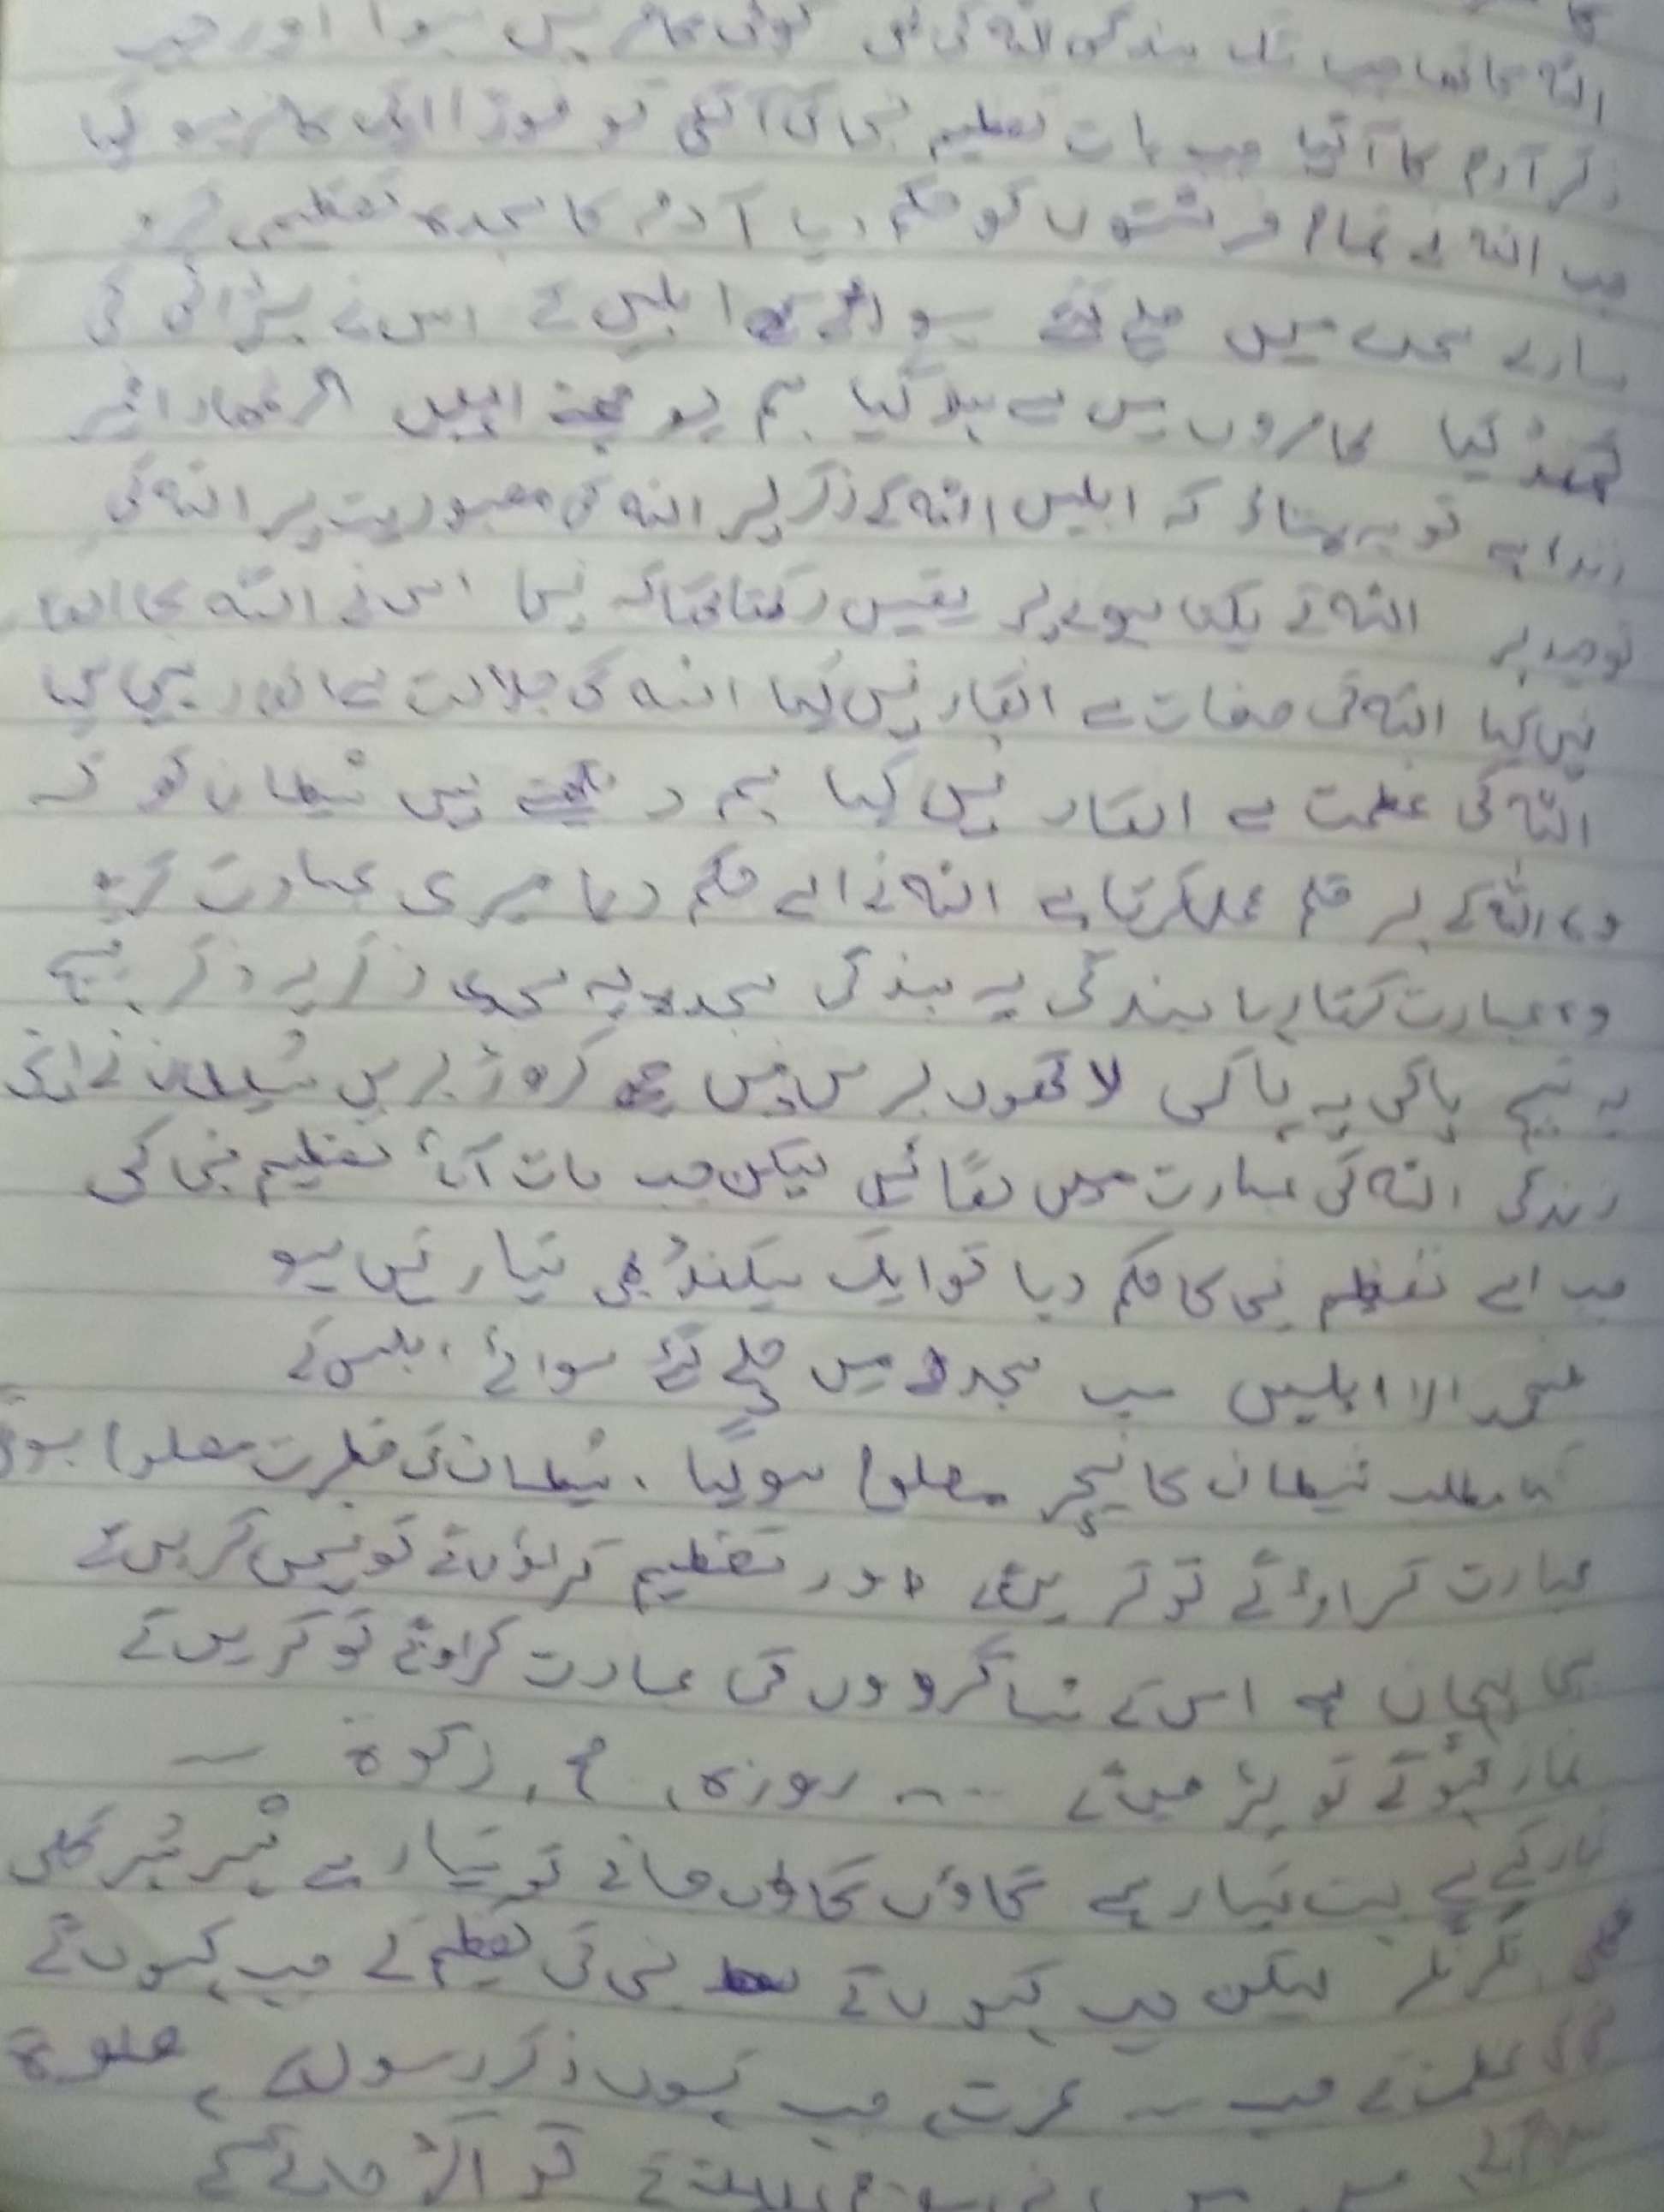 اللہ کا تھا جب تک بندگی اللہ کی تھی کوئی کافر نہیں ہوا اور جب
ذکر آدم کا آگیا جب بات تعظیم نبی کی آگئی تو فوراً کافر ہو گیا
جب اللہ نے تمام فرشتوں کو حکم دیا آدم کا سجدہ تعظیمی کرو
سارے سجدے میں چلے گئے سوائے ابلیس کے اس نے بڑائی کی
گھمنڈ کیا کافروں میں سے ہو گیا ہم پوچھتے
تو یہ بتاؤ کہ ابلیس اللہ کے ذکر پر اللہ کی معبودیت پر اللہ کی
توحید پر اللہ کے یکتا ہونے پر یقین رکھتا تھا کہ نہیں اس نے اللہ کا انکار
نہیں کیا اللہ کی صفات سے انکار نہیں کیا اللہ کی جلالت سے انکار نہیں کیا
اللہ کی عظمت سے انکار نہیں کیا ہم دیکھتے ہیں شیطان کو کہ
وہ اللہ کے ہر حکم عمل کرتا ہے اللہ نے اسے حکم دیا میری عبادت کرو
وہ عبادت کرتا رہا بندگی پہ بندگی سجدہ پہ سجدہ ذکر پہ ذکر تسبیح
پہ تسبیح پاکی پہ پاکی لاکھوں برس نہیں چھ کروڑ برس شیطان نے اپنی
زندگی اللہ کی عبادت میں لگائیں لیکن جب بات آئی تعظیم نبی کی
جب اسے تعظیم نبی کا حکم دیا تو ایک سیکنڈ بھی تیار نہیں ہو
فسجدو الا ابلیس سب سجدہ میں چلے گئے سوائے ابلیس کے
مطلب شیطان کا نیچر معلوم ہو گیا، شیطان کی فطرت معلوم ہوگئی
عبادت کراؤ گے تو کریں گے اور تعظیم کراؤں گے تو نہیں کریں گے
یہی پہچان ہے اس کے شاگردوں کی عبادت کراوگے تو کریں گے
نماز کہو گے تو پڑھیں گے ۔۔۔۔ روزہ، حج، زکوۃ ـــ
کے لیے بہت تیار ہے گاؤں گاؤں جانے تو تیار ہے شہر شہر گلی
گلی نگر نگر لیکن جب کہوں گے نبی کی تعظیم کے جب کہوں گے
نبی کی عظمت کے جب ـــ عزت، جب کہوں ذکر رسول کے، صلوۃ
تو اکڑ جائے گے